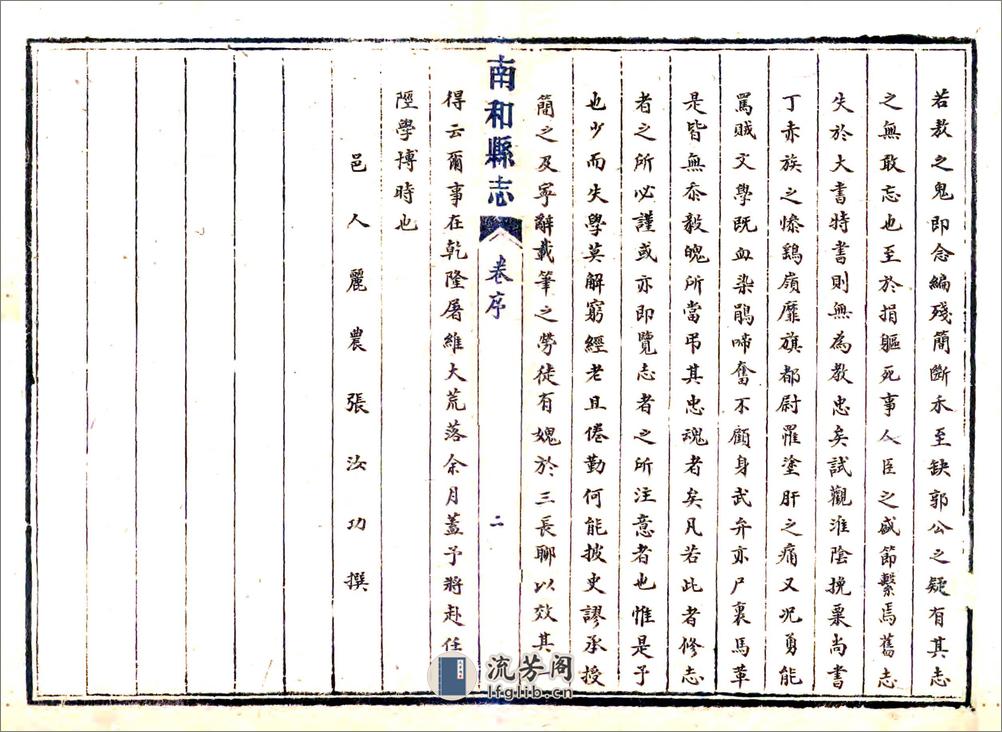 若敖之鬼即念編殘簡斷未至缺郭公之疑有其志
之無敢忘也至於捐軀死事人臣之盛節繫焉舊志
失於大書特書則無為教忠矣試觀淮陰挽粟尚書
丁赤族之慘鷄嶺靡旗都尉罹塗肝之痛又况勇能
罵賊文學既血染鵑啼奮不顧身武弁亦尸裏馬革
是皆無忝毅魄所當弔其忠魂者矣凡若此者修志
者之所必謹或亦即覽志者之所注意者也惟是予
也少而失學莫解窮經老且倦勤何能披史謬承授
簡之及寧辭載筆之勞徒有媿於三長聊以效其
南和縣志 卷序 二
得云爾事在乾隆屠維大荒落余月蓋予將赴任
陘學博時也
邑人麗農張汝功撰
流芳阁
lfglib.cn